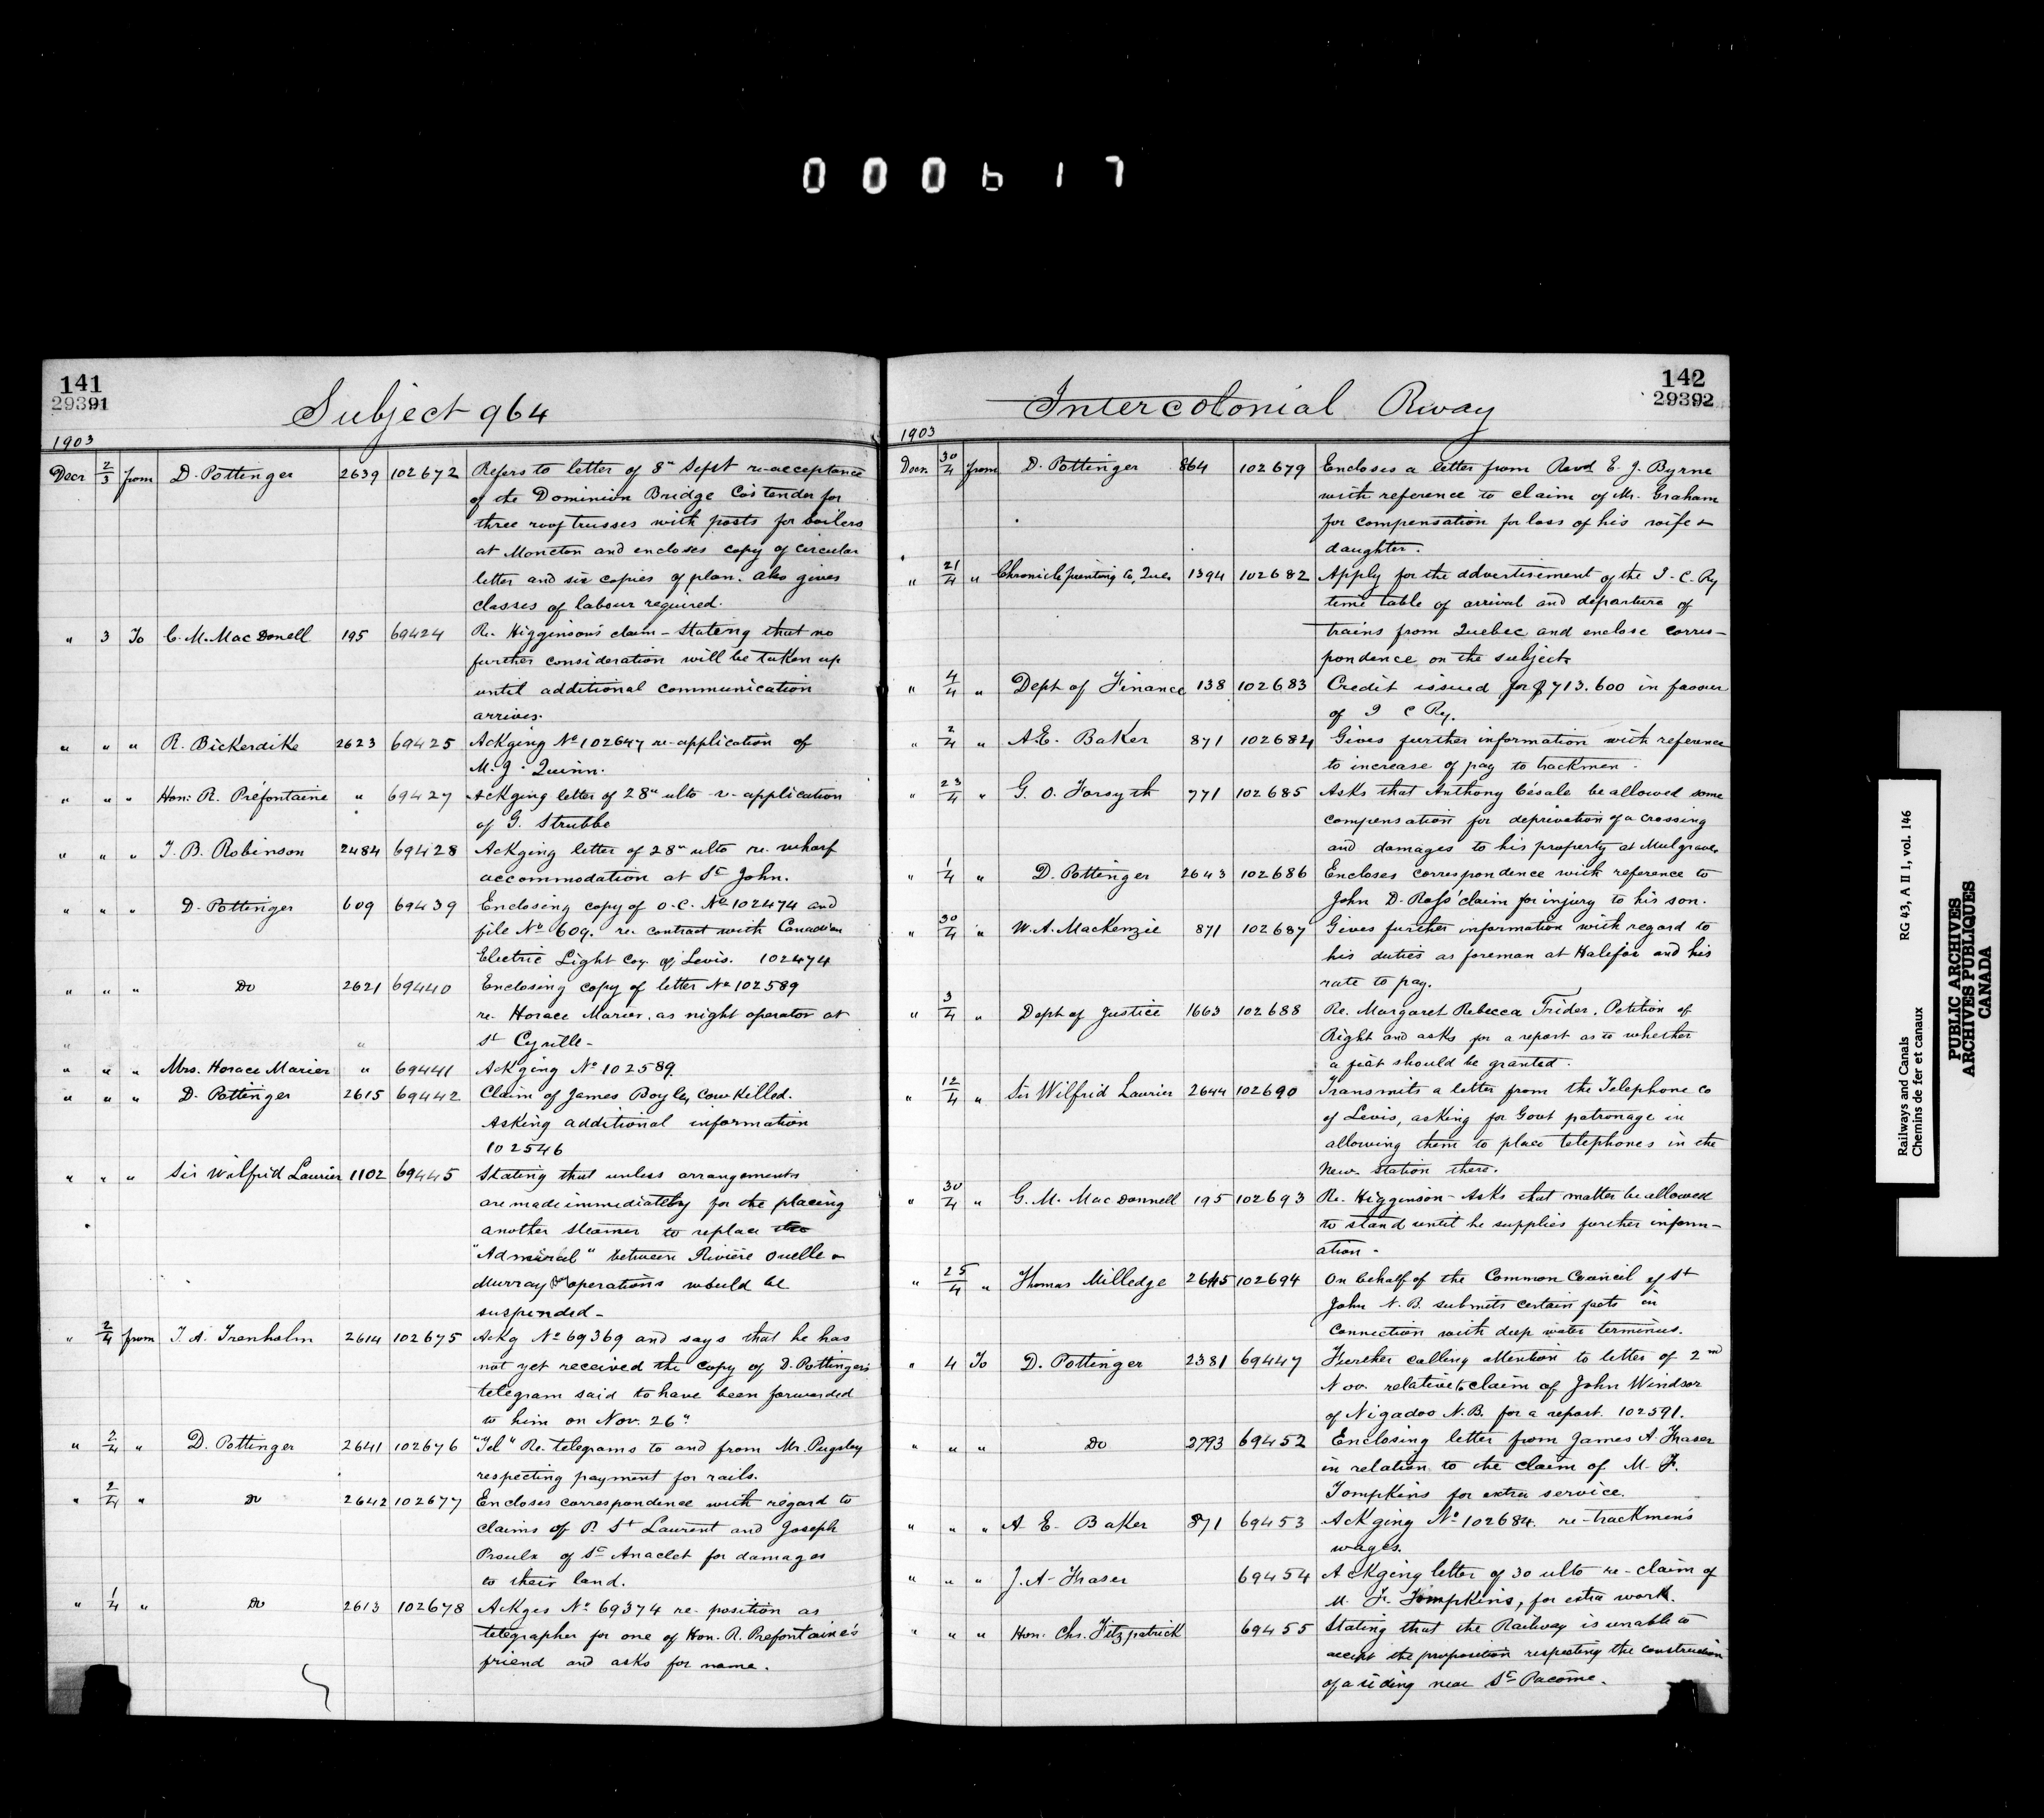 000617
141
29391
Subject 964
1903
Decr 2/3 from D. Pottinger 2639 102672 Refers to letter of 8" Sept re-acceptance
of the Dominion Bridge Co's tender for
three roof trusses with posts for boilers
at Moncton and encloses copy of circular
letter and six copies of plan. Also gives
classes of labour required.
" 3 To C. M. MacDonell 195 69424 Re. Higginson's claim - Stating that no
further consideration will be taken up
until additional communication
arrives.
" " " R. Bickerdike 2623 69425 Ackging No 102647 re-application of
M. J. Quinn.
" " " Hon: R. Préfontaine " 69427 Ackging letter of 28" ulto - r - application
of G. Strubbe
" " " T. B. Robinson 2484 69428 Ackging letter of 28" ulto re. wharf
accommodation at St John.
" " " D. Pottinger 609 69439 Enclosing copy of O.C. No 102474 and
file No 609. re. contract with Canadian
Electric Light Coy. of Levis. 102474
" " " Do 2621 69440 Enclosing copy of letter No 102589
re. Horace Marier. as night operator at
" " St Cyrille -
" " " Mrs. Horace Marier " 69441 Ackging No 102589.
" " " D. Pottinger 2615 69442 Claim of James Boyle, Cow Killed.
Asking additional information
102546
" " " Sir Wilfrid Laurier 1102 69445 Stating that unless arrangements
are made immediately for the placing
another steamer to replace the
"Admiral" between Rivière Ouelle &
Murray Bay operations would be
suspended -
" 2/4 from T. A. Trenholm 2614 102675 Ackg No 69369 and says that he has
not yet received the copy of D. Pottinger's
telegram said to have been forwarded
to him on Nov. 26"
" 2/4 " D. Pottinger 2641 102676 "Tel" Re. telegrams to and from Mr. Pugsley
respecting payment for rails.
" 2/4 " Do 2642 102677 Encloses correspondence with regard to
claims of P. St Laurent and Joseph
Proulx of St Anaclet for damages
to their land.
" 1/4 " Do 2613 102678 Ackges No 69374 re. position as
telegrapher for one of Hon. R. Prefontaine's
friend and asks for name.
142
29392
Intercolonial Rway
1903
Decr. 30/4 from D. Pottinger 864 102679 Encloses a letter from Revd E. J. Byrne
with reference to claim of Mr. Graham
for compensation for loss of his wife &
daughter.
" 21/4 " Chronicle printing Co, Quec 1394 102682 Apply for the advertisement of the I. C. Ry
time table of arrival and departure of
trains from Quebec and enclose corres-
pondence on the subject.
" 4/4 " Dept of Finance 138 102683 Credit issued for $713.600 in favour
of I C Ry.
" 2/4 " A. E. Baker 871 102684 Gives further information with reference
to increase of pay to trackmen.
" 23/4 " G. O. Forsyth 771 102685 Asks that Anthony Césale be allowed some
compensation for deprivation of a crossing
and damages to his property at Mulgrave.
" 1/4 " D. Pottinger 2643 102686 Encloses correspondence with reference to
John D. Ross' claim for injury to his son.
" 30/4 " W. A. MacKenzie 871 102687 Gives further information with regard to
his duties as foreman at Halifax and his
rate to pay.
" 3/4 " Dept of Justice 1663 102688 Re. Margaret Rebecca Trider. Petition of
Right and asks for a report as to whether
a fiat should be granted.
" 12/4 " Sir Wilfrid Laurier 2644 102690 Transmits a letter from the Telephone Co
of Levis, asking for Govt patronage in
allowing them to place telephones in the
New station there.
" 30/4 " G. M. MacDonnell 195 102693 Re. Higginson - Asks that matter be allowed
to stand until he supplies further inform-
ation -
" 25/4 " Thomas Milledge 2645 102694 On behalf of the Common Council of St
John N.B. submits certain facts in
connection with deep water terminus.
" 4 To D. Pottinger 2381 69447 Further calling attention to letter of 2nd
Nov. relative to claim of John Windsor
of Nigadoo N.B. for a report. 102591.
" " " Do 2793 69452 Enclosing letter from James A. Fraser
in relation to the claim of M. F.
Tompkins for extra service.
" " " A E. Baker 871 69453 Ackging No 102684. re-trackmen's
wages.
" " " J. A. Fraser 69454 Ackging letter of 30 ulto re-claim of
M. F. Tompkins, for extra work.
" " " Hon. Chs. Fitzpatrick 69455 Stating that the Railway is unable to
accept the proposition respecting the construction
of a siding near St Pacôme.
Railways and Canals RG 43, A II 1, vol. 146
Chemins de fer et canaux
PUBLIC ARCHIVES
ARCHIVES PUBLIQUES
CANADA